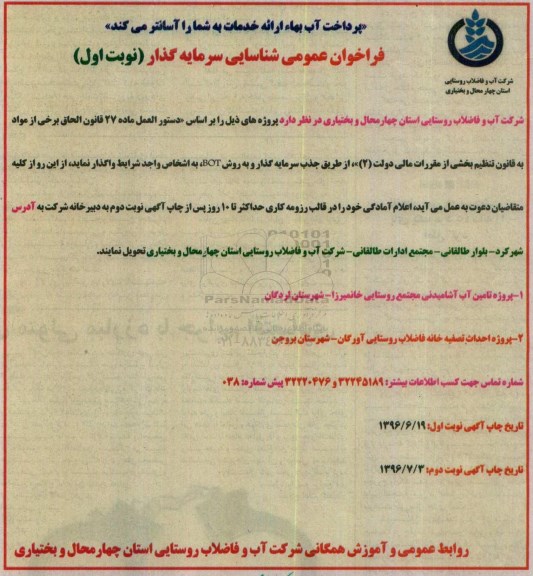 «پرداخت آب بهاء ارائه خدمات به شما را آسانتر می کند»
فراخوان عمومی شناسایی سرمایه گذار (نوبت اول)
شرکت آب و فاضلاب روستایی
استان چهار محال و بختیاری
شرکت آب و فاضلاب روستایی استان چهارمحال و بختیاری در نظر دارد پروژه های ذیل را بر اساس «دستور العمل ماده ۲۷ قانون الحاق برخی از مواد
به قانون تنظیم بخشی از مقررات مالی دولت (۲)»، از طریق جذب سرمایه گذار و به روش BOT، به اشخاص واجد شرایط واگذار نماید، از این رو از کلیه
متقاضیان دعوت به عمل می آید، اعلام آمادگی خود را در قالب رزومه کاری حداکثر تا ۱۰ روز پس از چاپ آگهی نوبت دوم به دبیرخانه شرکت به آدرس
شهرکرد- بلوار طالقانی- مجتمع ادارات طالقانی- شرکت آب و فاضلاب روستایی استان چهارمحال و بختیاری تحویل نمایند.
ParsNamadData
۱-پروژه تامین آب آشامیدنی مجتمع روستایی خانمیرزا- شهرستان لردگان
۲-پروژه احداث تصفیه خانه فاضلاب روستایی آورگان- شهرستان بروجن
شماره تماس جهت کسب اطلاعات بیشتر: ۳۲۲۴۵۱۸۹ و ۳۲۲۲۰۴۷۶ پیش شماره: ۰۳۸
تاریخ چاپ آگهی نوبت اول: ۱۳۹۶/۶/۱۹
تاریخ چاپ آگهی نوبت دوم: ۱۳۹۶/۷/۳
روابط عمومی و آموزش همگانی شرکت آب و فاضلاب روستایی استان چهارمحال و بختیاری